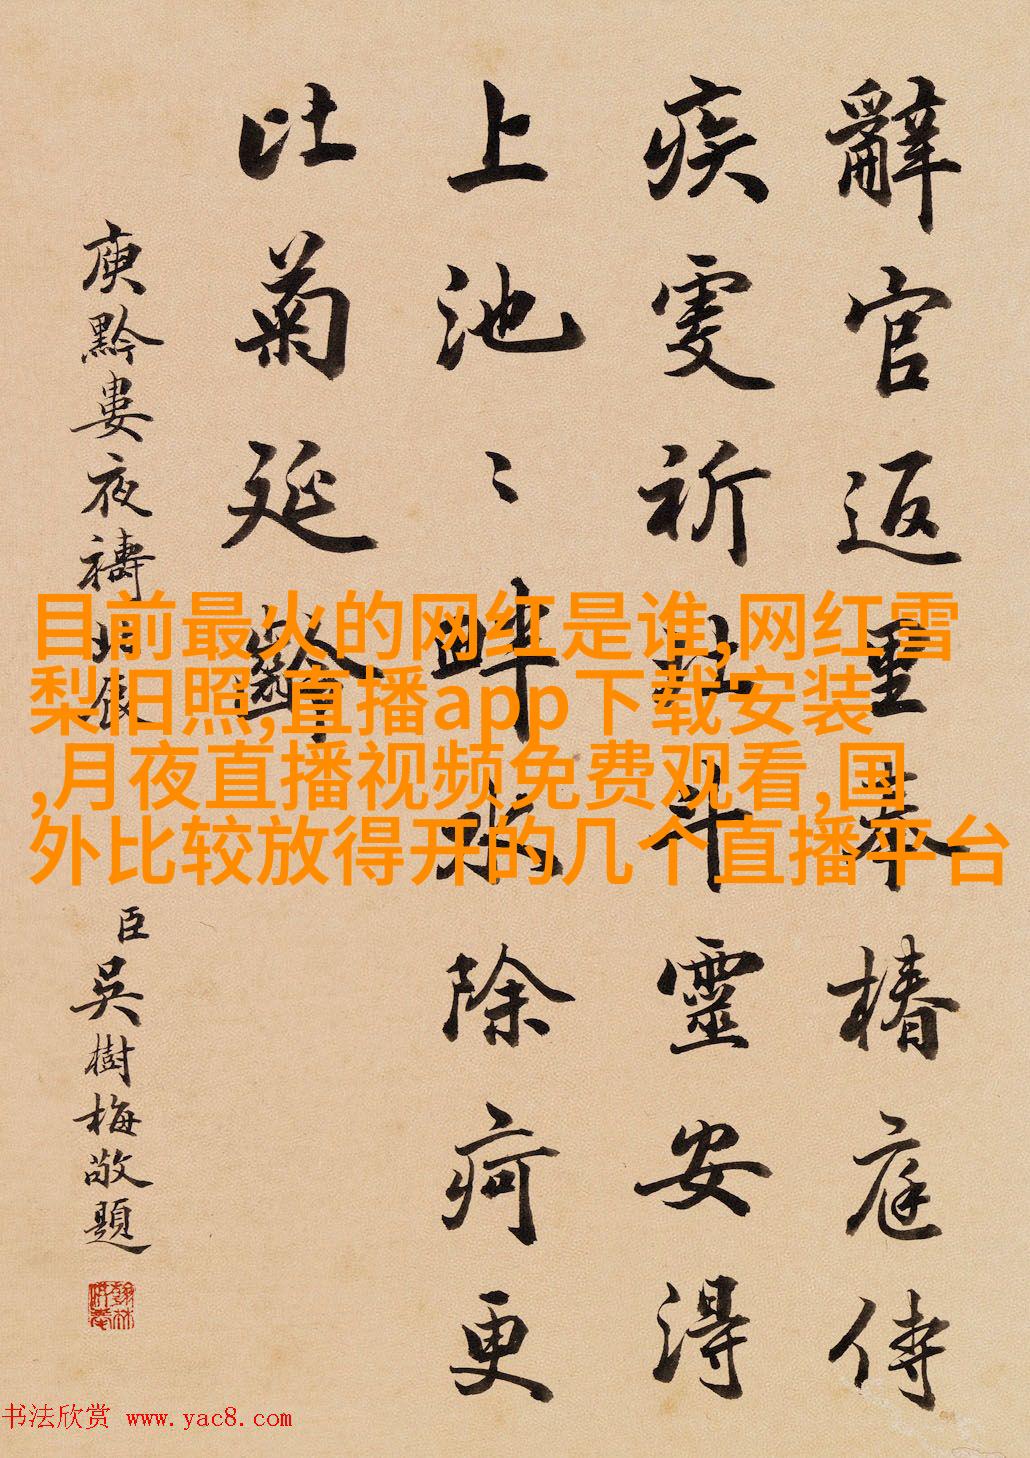 辭官返里奉椿庭侍
疾虔祈北斗靈安得
上池〻畔水除疴更
比菊延齡
庾黔婁夜禱北辰
臣吳樹梅敬題
目前最火的网红是谁,网红雪
梨旧照,直播app下载安装
,月夜直播视频免费观看,国
外比较放得开的几个直播平台
书法欣赏 www.yac8.com